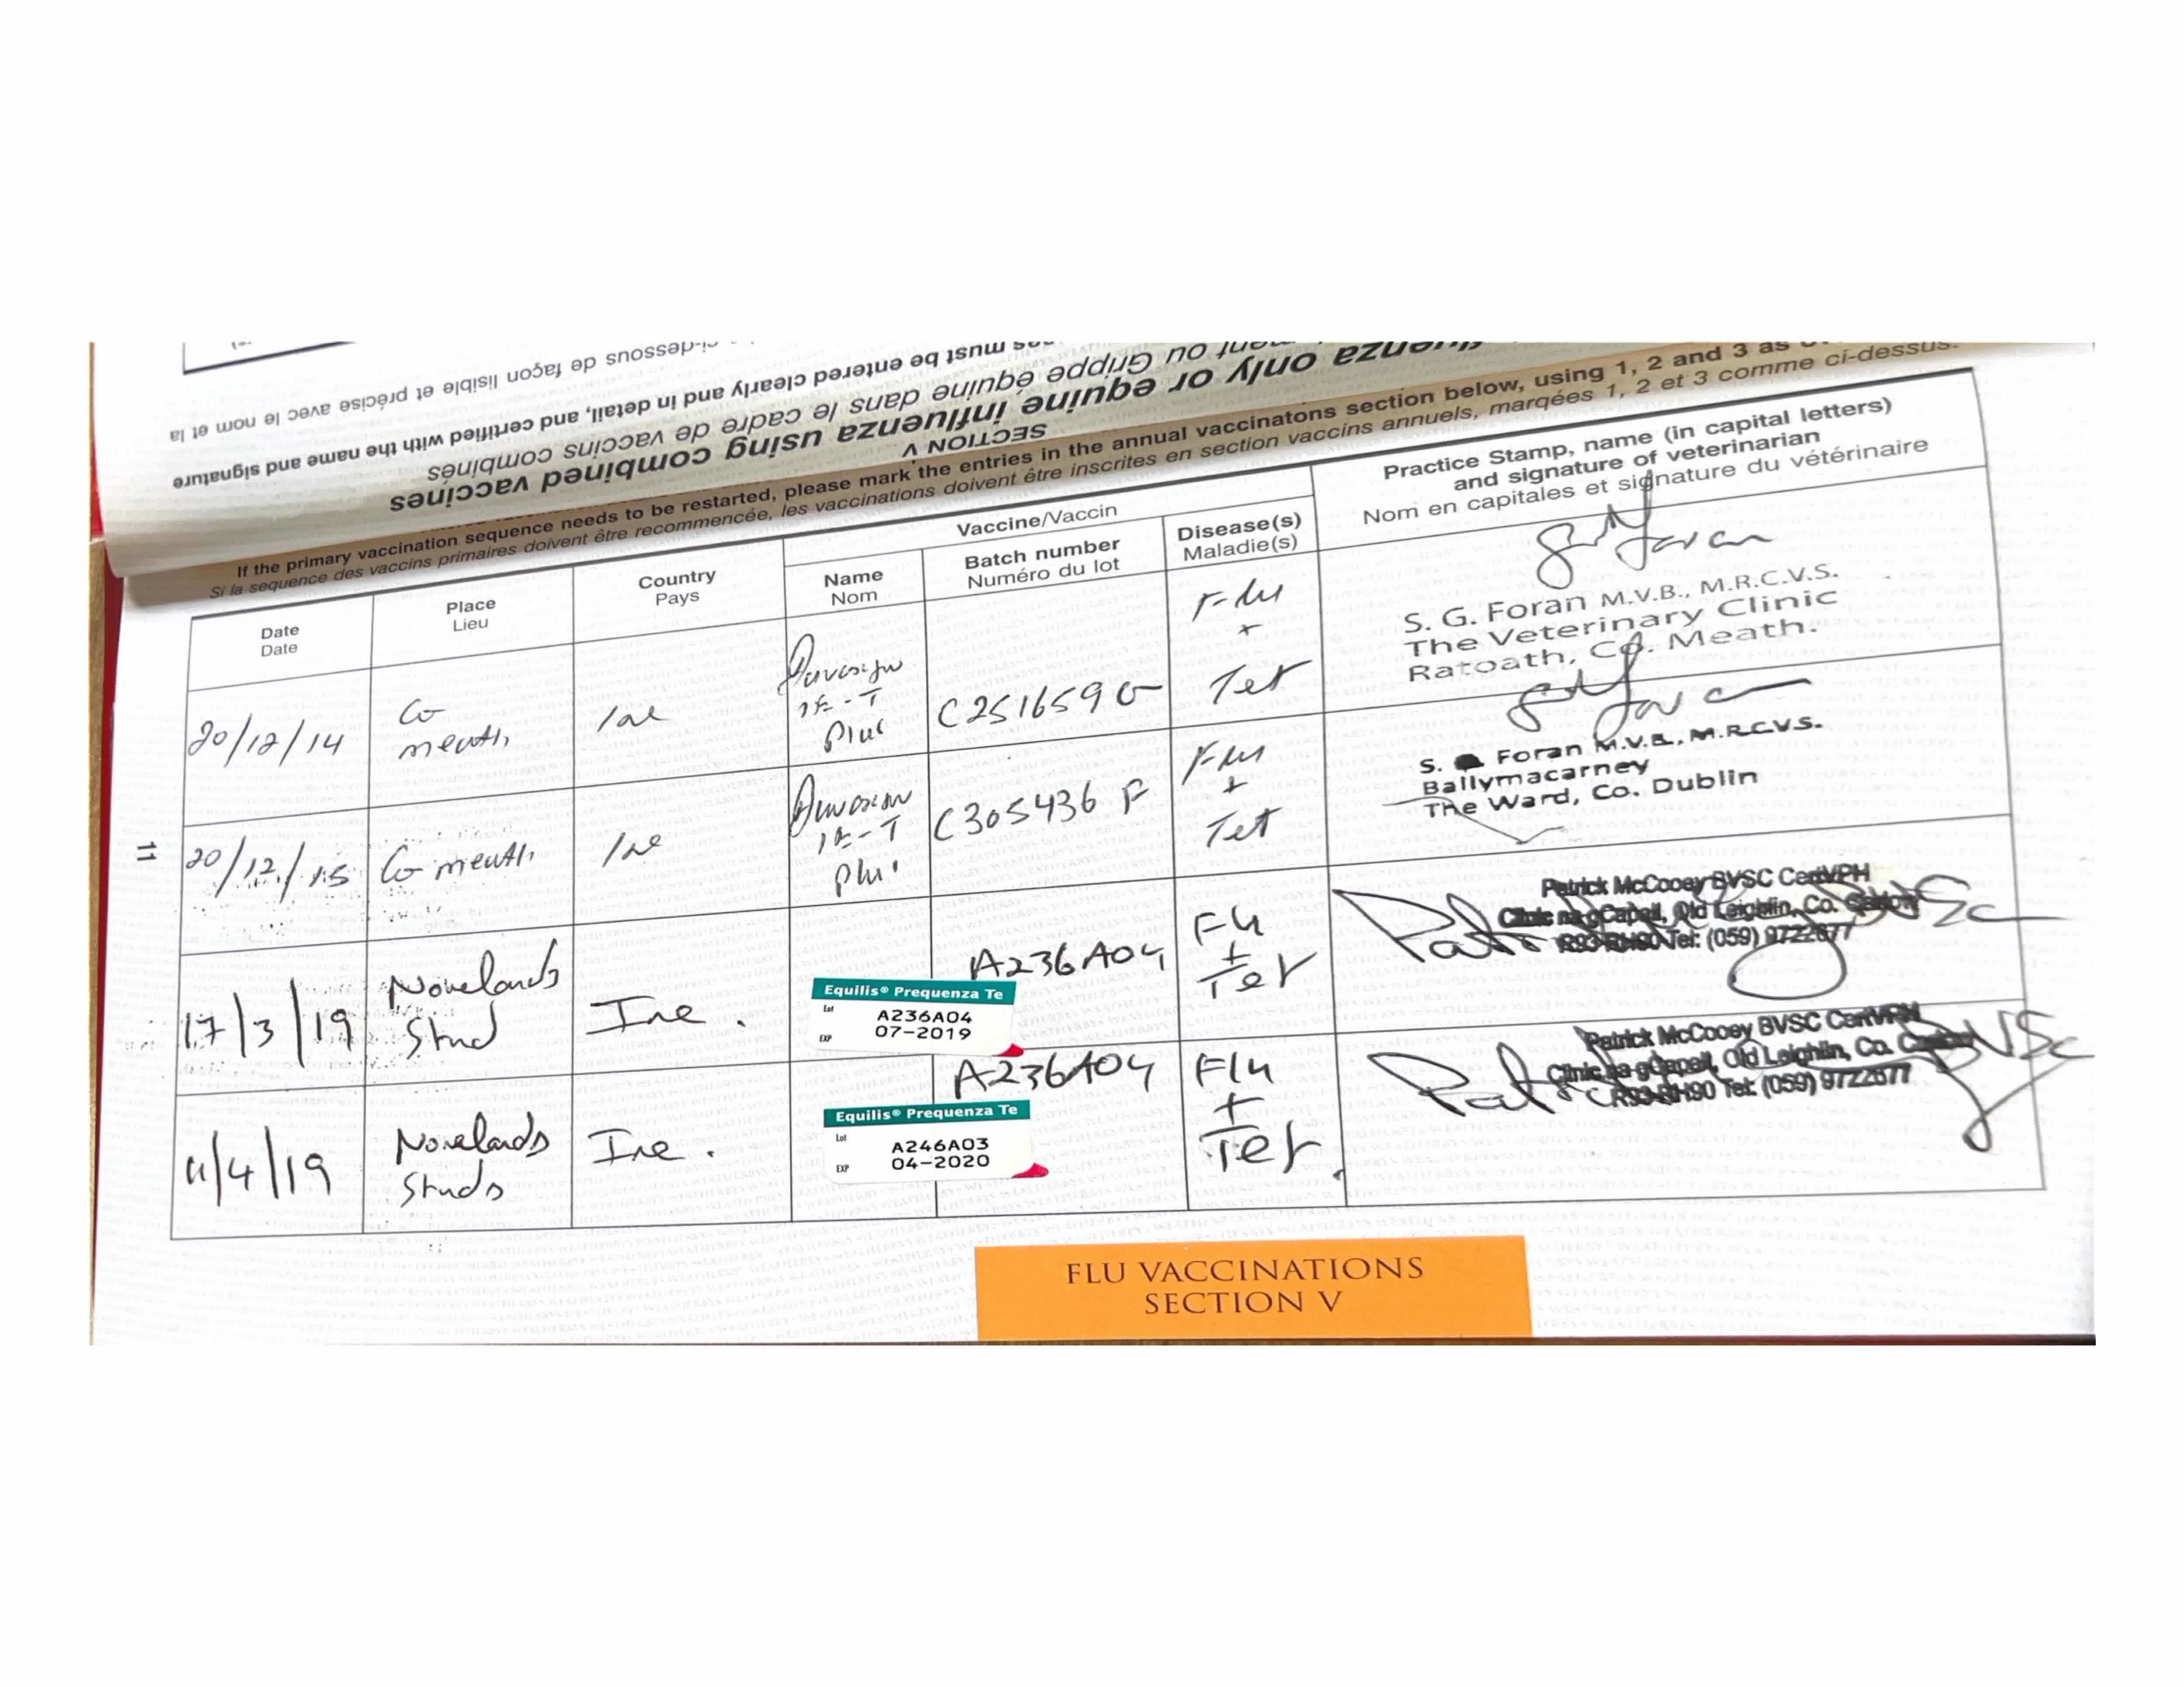 ci-dessous de façon lisible et précise avec le nom et la
must be entered clearly and in detail, and certified with the name and signature
ou Grippe équine dans le cadre de vaccins combinés
only or equine influenza using combined vaccines
SECTION V
If the primary vaccination sequence needs to be restarted, please mark the entries in the annual vaccinatons section below, using 1, 2 and 3 as
Si la sequence des vaccins primaires doivent être recommencée, les vaccinations doivent être inscrites en section vaccins annuels, marqées 1, 2 et 3 comme ci-dessus.
Date
Date
Place
Lieu
Country
Pays
Vaccine/Vaccin
Name
Nom
Batch number
Numéro du lot
Disease(s)
Maladie(s)
Practice Stamp, name (in capital letters)
and signature of veterinarian
Nom en capitales et signature du vétérinaire
20/12/14
Co
Meath
Ire
IE-T
Plus
C251659G
Flu
+
Tet
S. G. Foran M.V.B., M.R.C.V.S.
The Veterinary Clinic
Ratoath, Co. Meath.
20/12/15
Co Meath
Ire
IE-T
Plus
C305436 F
Flu
+
Tet
S. Foran M.V.B., M.R.C.V.S.
Ballymacarney
The Ward, Co. Dublin
11
17/3/19
Novelands
Stud
Ire.
A236A04
Equilis® Prequenza Te
Lot A236A04
EXP 07-2019
Flu
+
Tet
Patrick McCooey BVSC CertVPH
Clinic na gCapall, Old Leighlin, Co. Carlow
R93 RH90 Tel: (059) 9722677
11/4/19
Novelands
Studs
Ire.
A236A04
Equilis® Prequenza Te
Lot A246A03
EXP 04-2020
Flu
+
Tet.
Patrick McCooey BVSC CertVPH
Clinic na gCapall, Old Leighlin, Co. Carlow
R93 RH90 Tel: (059) 9722677
FLU VACCINATIONS
SECTION V